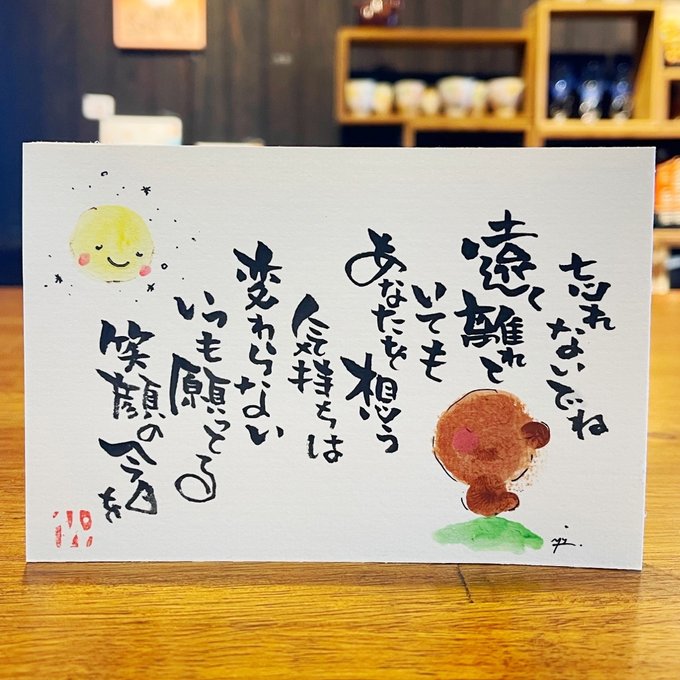 忘れ
ないでね
遠くて
離れて
いても
あなたを想う
気持ちは
変わらない
いつも願ってる
笑顔の今を